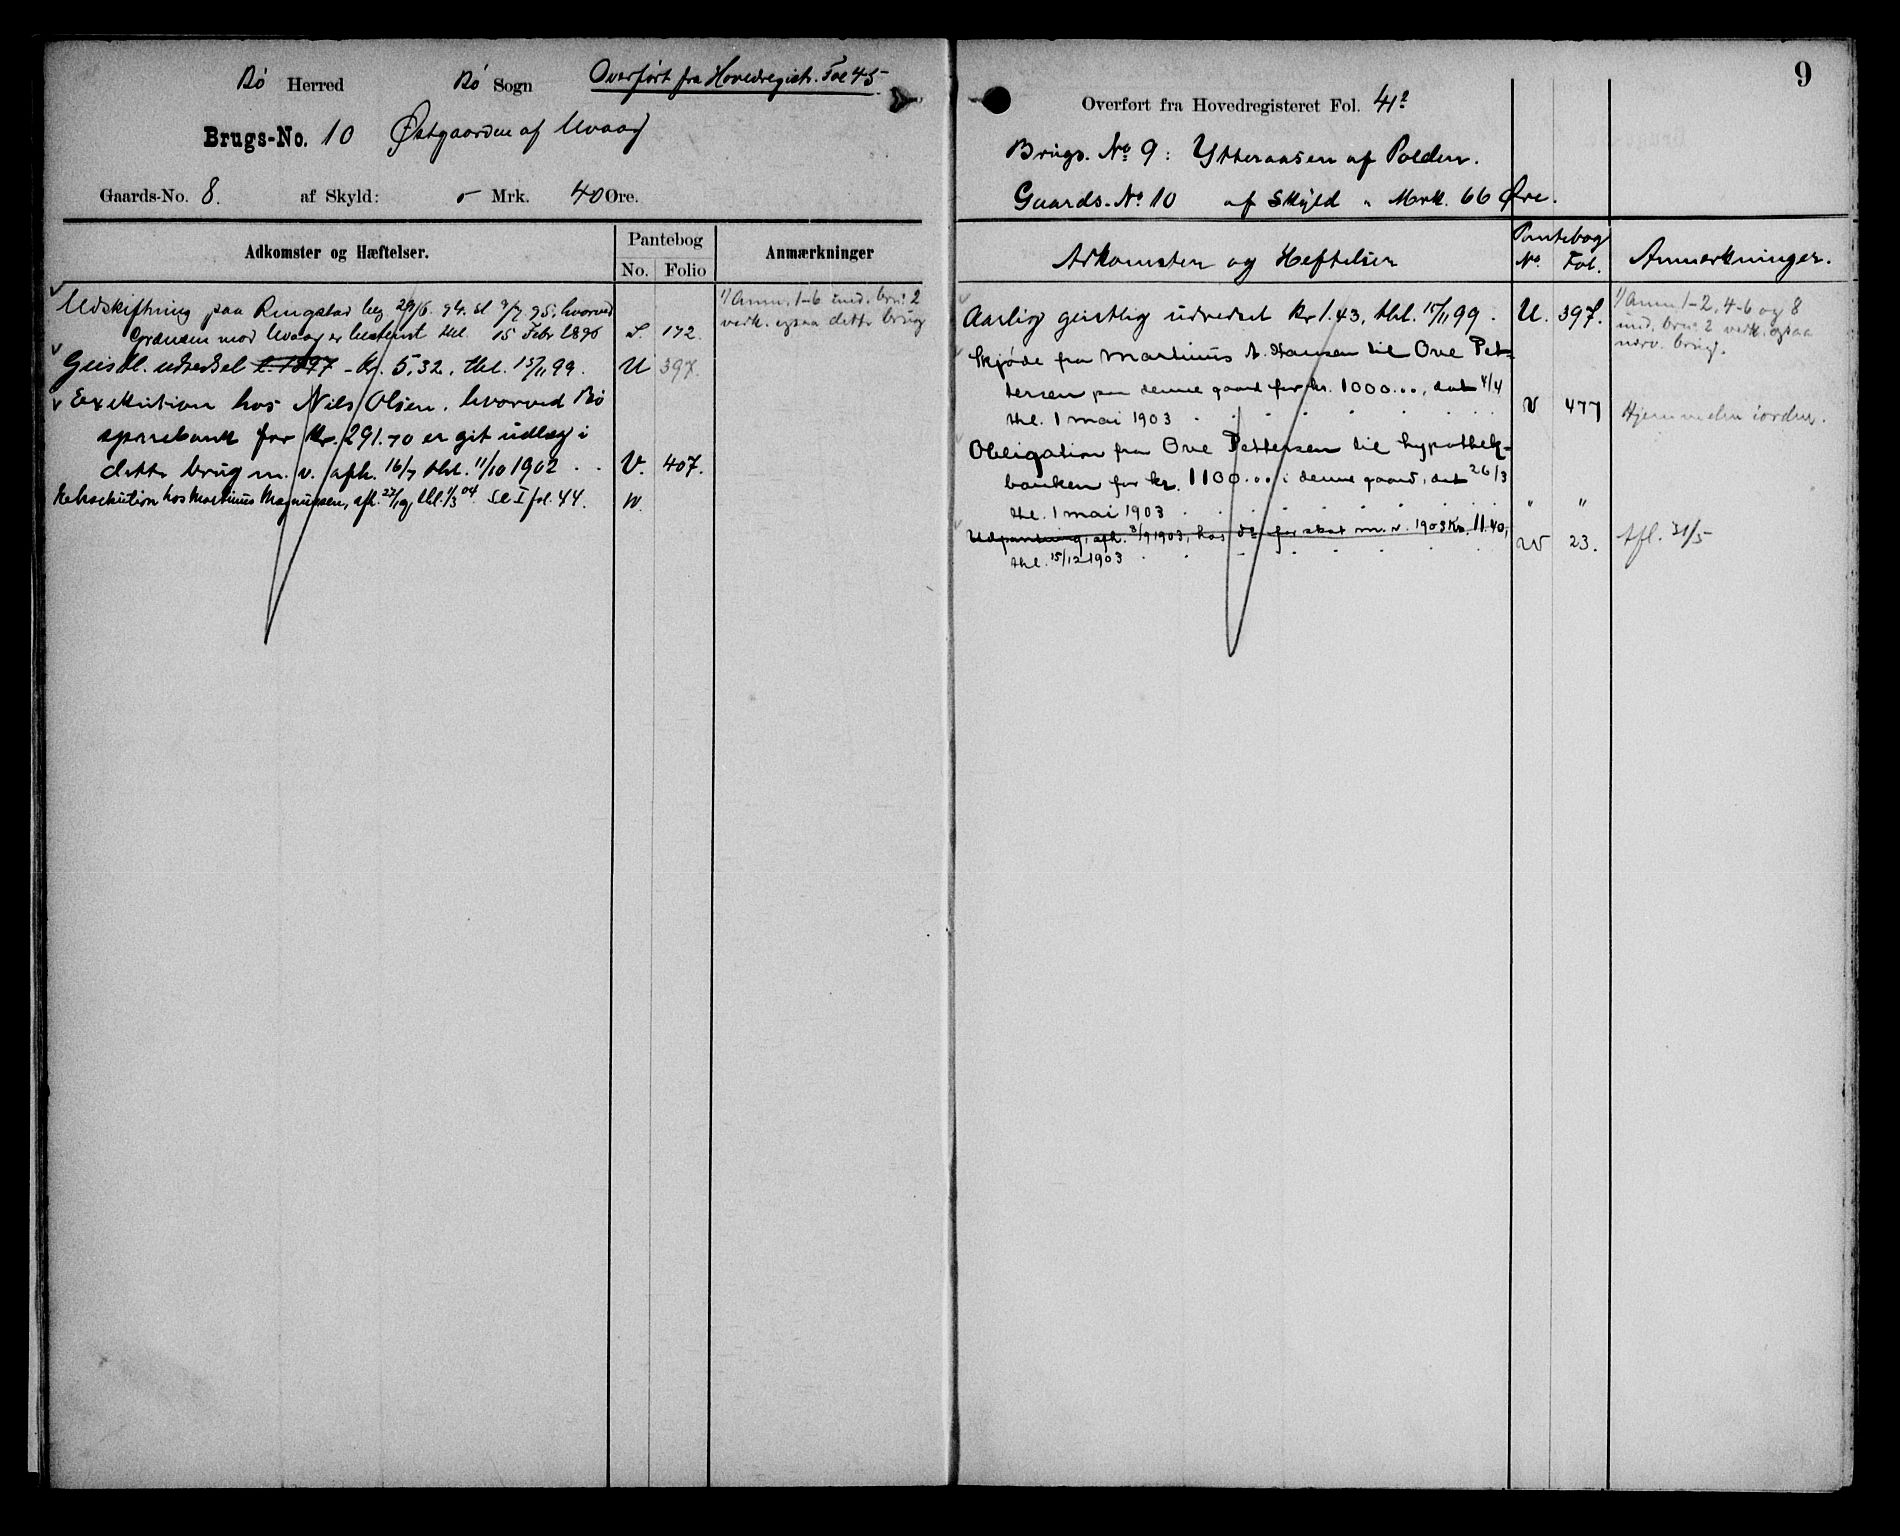 Bø Herred Bø Sogn Overført fra Hovedregistr. Fol 45
Brugs-No. 10 Østgaarden af Uvaag
Gaards-No. 8. af Skyld: - Mrk. 40 Øre.
Adkomster og Hæftelser.
Pantebog
No. Folio
Anmærkninger
Udskiftning paa Ringstad beg 29/6. 94. sl 9/7 95, hvorved
Grænsen mod Uvaag er bestemt thl. 15 Febr 1896 S. 172.
1) Anm. 1-6 ind. brn. 2
vedk. ogsaa dette brug
Geistl. udredsel t. 1897 - Kr. 5,32, thl. 15/11 99. U 397.
Exekution hos Nils Olsen, hvorved Bø
sparebank for kr. 291.70 er git udlæg i
dette brug m. v. afh. 16/7 thl. 11/10 1902 . . V. 407.
RekseKution hos Martinus Magnussen, afh. 22/9, thl. 1/3 04. Se I fol. 44. W.
9
Overført fra Hovedregisteret Fol. 41²
Brugs. No 9: Ytteraasen af Polden.
Gaards. No 10 af Skyld " Mrk. 66 Øre.
Adkomster og Heftelser
Pantebog
No. Fol.
Anmærkninger.
Aarlig geistlig udredsel Kr 1.43, thl. 15/11 99. U. 397.
1) Anm 1-2, 4-6 og 8
ind. brn. 2 vedk. ogsaa
nærv. brug.
Skjøde fra Martinus A. Hansen til Ove Pet-
tersen paa denne gaard for kr. 1000..., dat 4/4
thl. 1 mai 1903 . . . . . . . V 477 Hjemmelen i orden.
Obligation fra Ove Pettersen til hypothek-
banken for kr. 1100... i denne gaard, dat 26/3
thl. 1 mai 1903 . . . . . . . " "
Udpantning, afh. 3/9 1903, hos do for skat m. v. 1903 Kr. 11.40,
thl. 15/12 1903 . . . . . . . W 23. Afl. 31/5